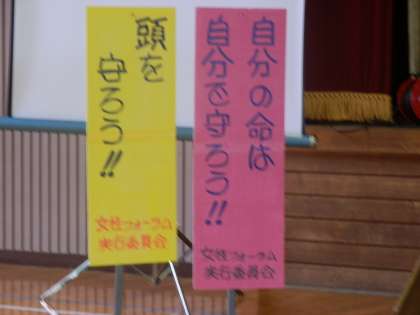 自分の命は
自分で守ろう!!
女性フォーラム
実行委員会
頭を
守ろう!!
女性フォーラム
実行委員会